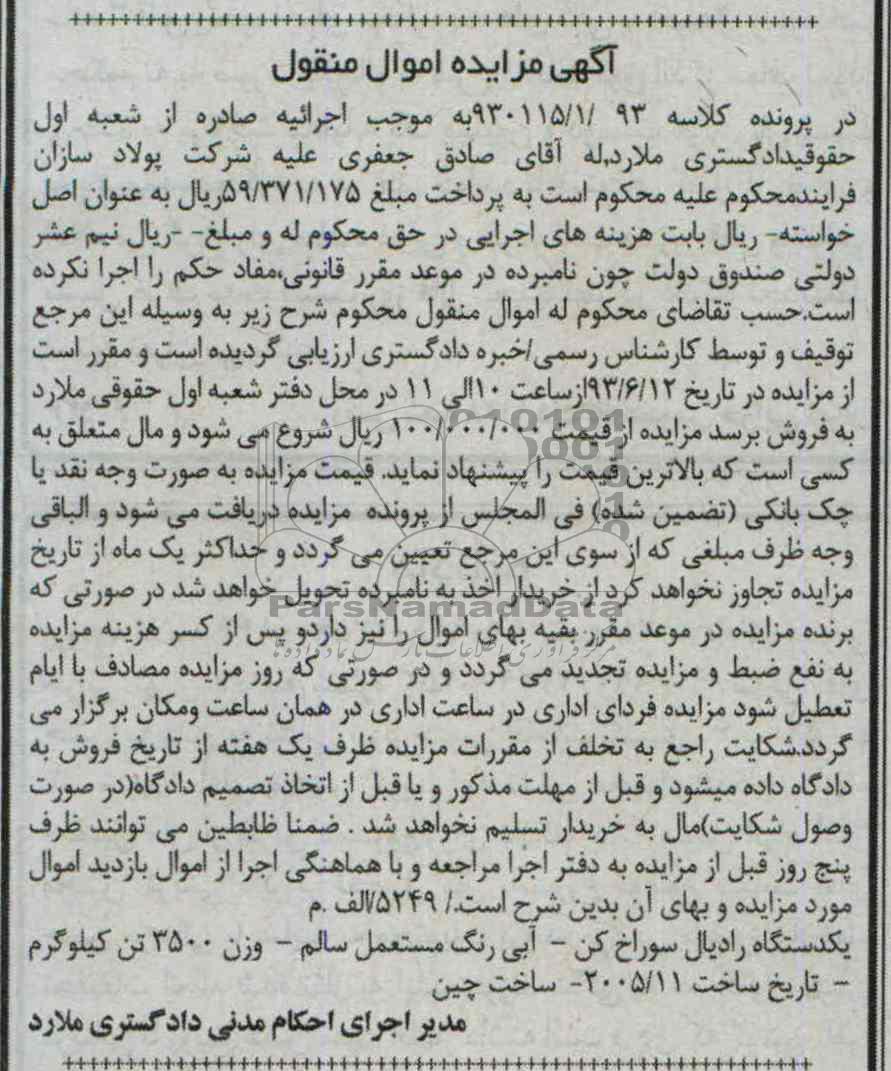 آگهی مزایده اموال منقول
در پرونده کلاسه ۹۳ /۹۳۰۱۱۵/۱به موجب اجرائیه صادره از شعبه اول
حقوقیدادگستری ملارد,له آقای صادق جعفری علیه شرکت پولاد سازان
فرایندمحکوم علیه محکوم است به پرداخت مبلغ ۵۹/۳۷۱/۱۷۵ریال به عنوان اصل
خواسته- ریال بابت هزینه های اجرایی در حق محکوم له و مبلغ- -ریال نیم عشر
دولتی صندوق دولت چون نامبرده در موعد مقرر قانونی،مفاد حکم را اجرا نکرده
است.حسب تقاضای محکوم له اموال منقول محکوم شرح زیر به وسیله این مرجع
توقیف و توسط کارشناس رسمی/خبره دادگستری ارزیابی گردیده است و مقرر است
از مزایده در تاریخ ۹۳/۶/۱۲ازساعت ۱۰الی ۱۱ در محل دفتر شعبه اول حقوقی ملارد
به فروش برسد مزایده از قیمت ۱۰۰/۰۰۰/۰۰۰ ریال شروع می شود و مال متعلق به
کسی است که بالاترین قیمت را پیشنهاد نماید. قیمت مزایده به صورت وجه نقد یا
چک بانکی (تضمین شده) فی المجلس از پرونده مزایده دریافت می شود و الباقی
وجه ظرف مبلغی که از سوی این مرجع تعیین می گردد و حداکثر یک ماه از تاریخ
مزایده تجاوز نخواهد کرد از خریدار اخذ به نامبرده تحویل خواهد شد در صورتی که
برنده مزایده در موعد مقرر بقیه بهای اموال را نیز داردو پس از کسر هزینه مزایده
به نفع ضبط و مزایده تجدید می گردد و در صورتی که روز مزایده مصادف با ایام
تعطیل شود مزایده فردای اداری در ساعت اداری در همان ساعت ومکان برگزار می
گردد.شکایت راجع به تخلف از مقررات مزایده ظرف یک هفته از تاریخ فروش به
دادگاه داده میشود و قبل از مهلت مذکور و یا قبل از اتخاذ تصمیم دادگاه(در صورت
وصول شکایت)مال به خریدار تسلیم نخواهد شد . ضمنا ظابطین می توانند ظرف
پنج روز قبل از مزایده به دفتر اجرا مراجعه و با هماهنگی اجرا از اموال بازدید اموال
مورد مزایده و بهای آن بدین شرح است./ ۵۲۴۹/الف .م
یکدستگاه رادیال سوراخ کن - آبی رنگ مستعمل سالم - وزن ۳۵۰۰ تن کیلوگرم
- تاریخ ساخت ۲۰۰۵/۱۱- ساخت چین
مدیر اجرای احکام مدنی دادگستری ملارد
ParsNamadData